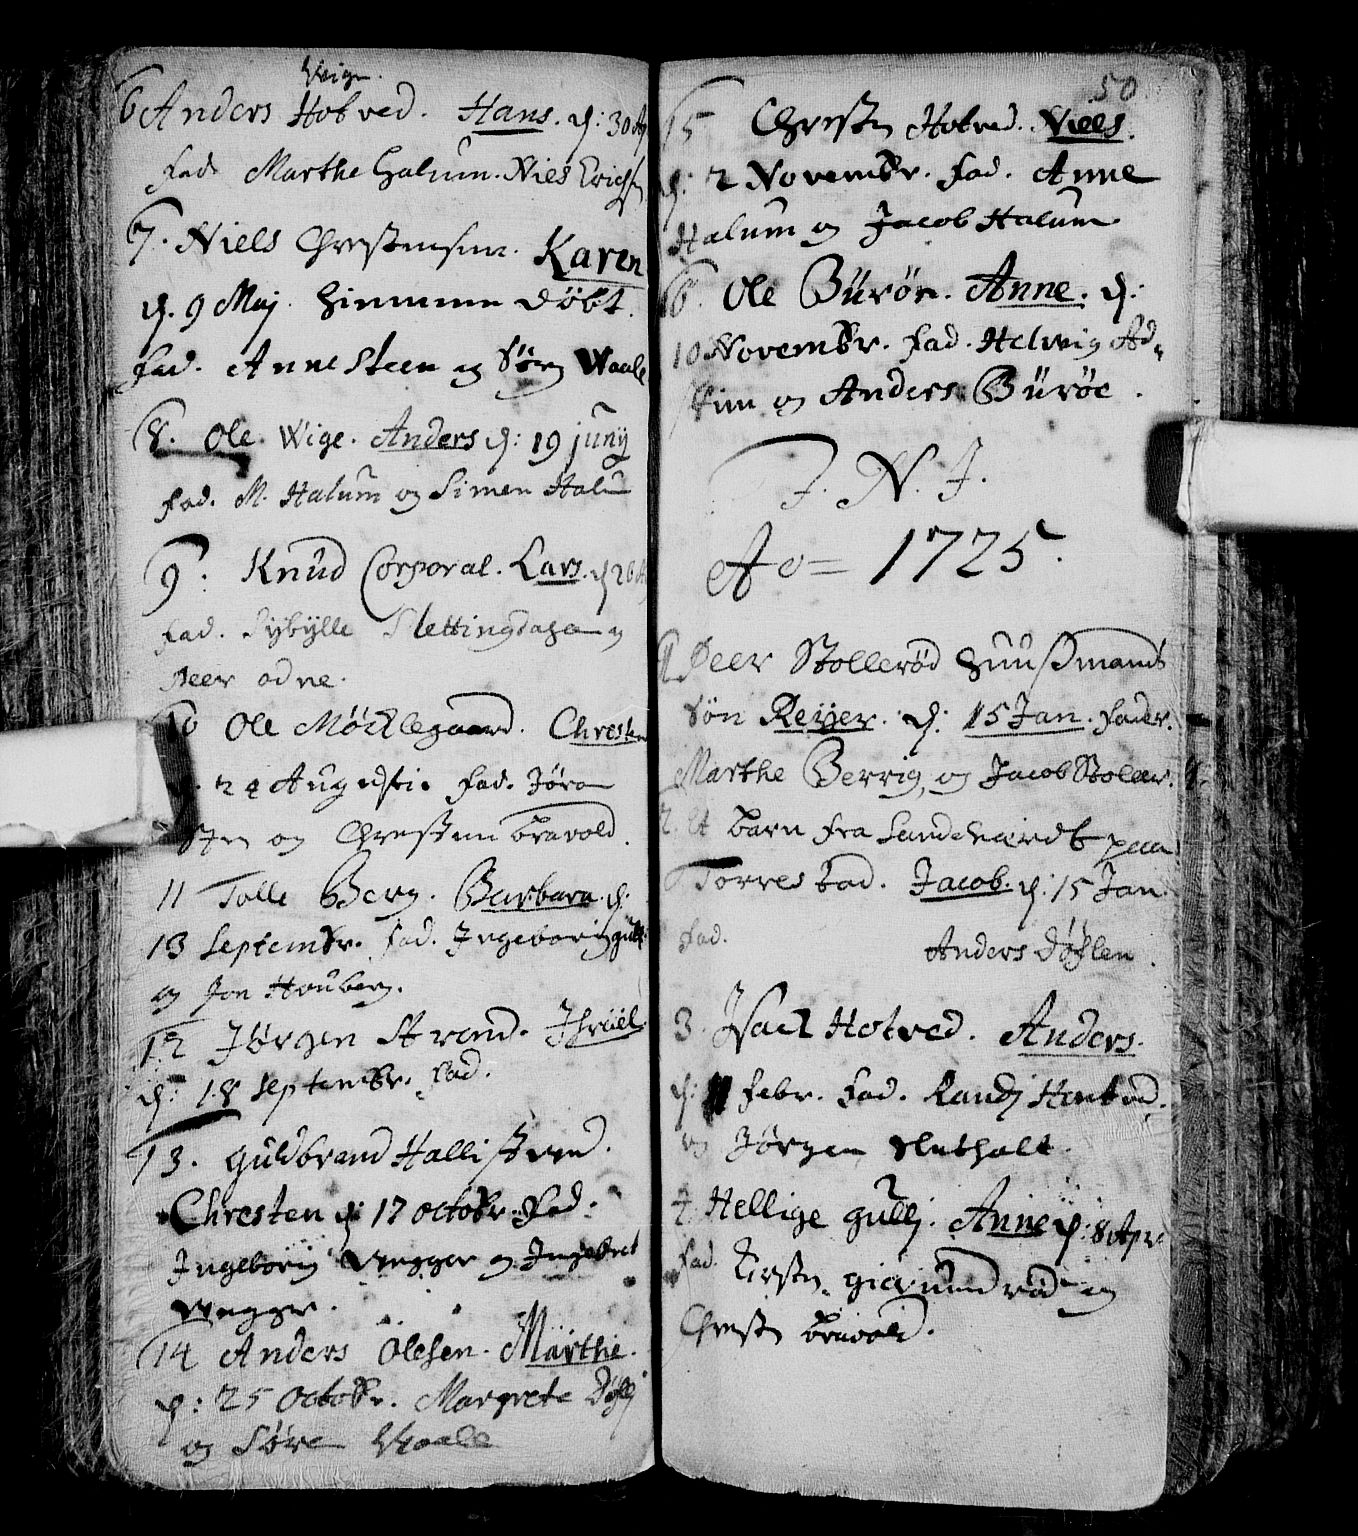 Wige.
6 Anders Hotved. Hans. d: 30
Fad. Marthe Halum. Niels Erichsen
7. Niels Christensen. Karen
d. 9 Maj. Hiemme døbt.
Fad. Anne Steen og Søren Waale
8. Ole Wige. Anders d: 19 junij
Fad. M. Halum og Simen Halum
9. Knud Corporal. Lars. d 26
Fad. Sybylle Slettingdagen og
Peer odne.
10 Ole Möcklegaard. Chresten
24 Augusti. Fad. Jøran
Steen og Chresten bravold.
11 Tolle Berg. Barbara. d.
13 Septembr. Fad. Ingeborg gulli
og Jon Houberg.
12 Jørgen Strand. Jsrael
d: 18 Septembr. Fad.
13. Guldbrand Hallistvend.
Chresten d: 17 octobr. Fad:
Ingeborig Wegger og Ingebret
Wegger.
14 Anders Olesen. Marthe.
d: 25 Octobr. Margrete Døfle
og Søren Waale
50
15 Christen Hotved. Niels.
d: 2 Novembr. Fad. Anne
Halum og Jacob Halum
16. Ole Burøe. Anne. d:
10 Novembr. Fad. Helvig Ad-
og Anders Burøe.
J. N. J.
Ao = 1725.
1 Peer Stollerød Huusmands
Søn Reyer. d: 15 Jan. Fader.
Marthe Berrig, og Jacob Stoler.
2. Et barn fra Sandeherridt paa
Torrestad. Jacob. d: 15 Jan.
Fad. Anders Døflen.
3. Isach Hotved. Anders.
d: 11 Febr. Fad. Randj Hotved.
og Jørgen Slatholt
4. Hellige gullj. Anne d: 8 Apr.
Fad. Kirsten gierumdrød og
Christen bravold.